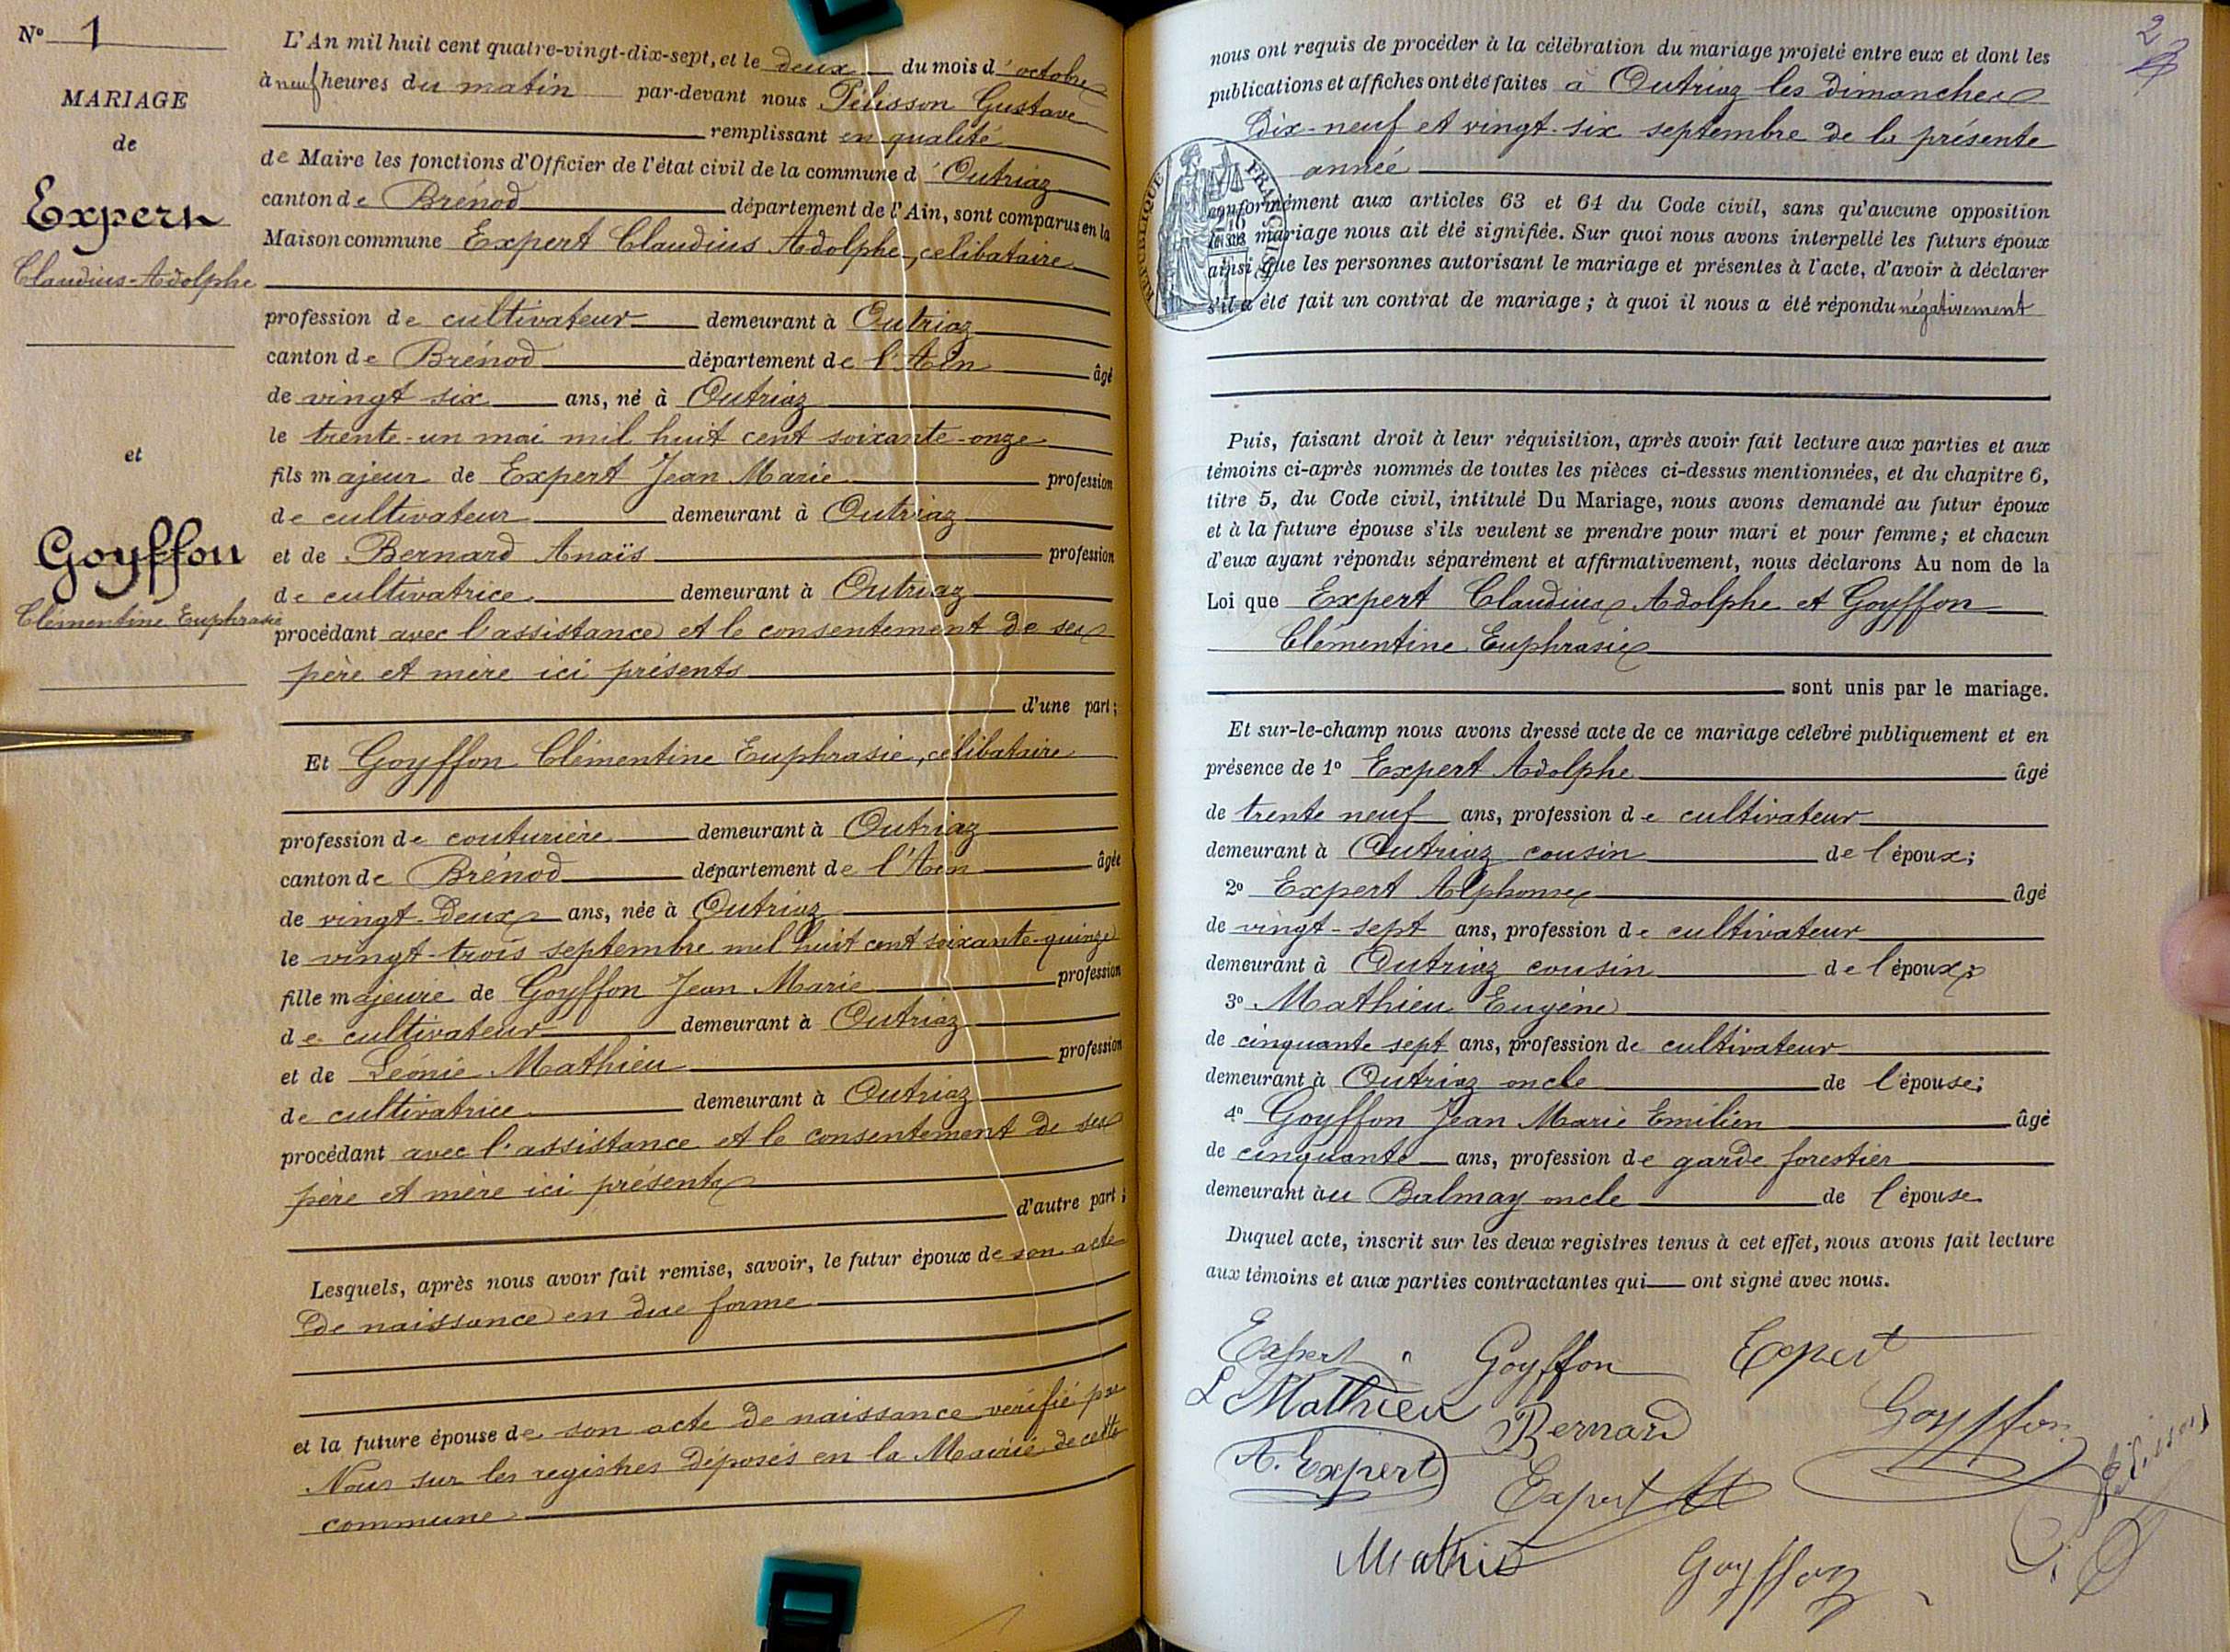 N° 1
MARIAGE
de
Expert
Claudius-Adolphe
et
Goyffon
Clémentine Euphrasie
L'An mil huit cent quatre-vingt-dix-sept, et le deux du mois d'octobre
à neuf heures du matin par-devant nous Pélisson Gustave
remplissant en qualité
de Maire les fonctions d'Officier de l'état civil de la commune d'Outriaz
canton de Brénod département de l'Ain, sont comparus en la
Maison commune Expert Claudius Adolphe, célibataire
profession de cultivateur demeurant à Outriaz
canton de Brénod département de l'Ain âgé
de vingt six ans, né à Outriaz
le trente-un mai mil huit cent soixante-onze
fils majeur de Expert Jean Marie profession
de cultivateur demeurant à Outriaz
et de Bernard Anaïs profession
de cultivatrice demeurant à Outriaz
procédant avec l'assistance et le consentement de ses
père et mère ici présents
d'une part;
Et Goyffon Clémentine Euphrasie, célibataire
profession de couturière demeurant à Outriaz
canton de Brénod département de l'Ain âgée
de vingt-deux ans, née à Outriaz
le vingt-trois septembre mil huit cent soixante-quinze
fille majeure de Goyffon Jean Marie profession
de cultivateur demeurant à Outriaz
et de Léonie Mathieu profession
de cultivatrice demeurant à Outriaz
procédant avec l'assistance et le consentement de ses
père et mère ici présents
d'autre part;
Lesquels, après nous avoir fait remise, savoir, le futur époux de son acte
de naissance en due forme
et la future épouse de son acte de naissance vérifié par
Nous sur les registres déposés en la Mairie de cette
commune
2
nous ont requis de procéder à la célébration du mariage projeté entre eux et dont les
publications et affiches ont été faites à Outriaz les dimanches
dix-neuf et vingt-six septembre de la présente
année
conformément aux articles 63 et 64 du Code civil, sans qu'aucune opposition
mariage nous ait été signifiée. Sur quoi nous avons interpellé les futurs époux
ainsi que les personnes autorisant le mariage et présentes à l'acte, d'avoir à déclarer
s'il a été fait un contrat de mariage; à quoi il nous a été répondu négativement
RÉPUBLIQUE FRANÇAISE
Puis, faisant droit à leur réquisition, après avoir fait lecture aux parties et aux
témoins ci-après nommés de toutes les pièces ci-dessus mentionnées, et du chapitre 6,
titre 5, du Code civil, intitulé Du Mariage, nous avons demandé au futur époux
et à la future épouse s'ils veulent se prendre pour mari et pour femme; et chacun
d'eux ayant répondu séparément et affirmativement, nous déclarons Au nom de la
Loi que Expert Claudius Adolphe et Goyffon
Clémentine Euphrasie
sont unis par le mariage.
Et sur-le-champ nous avons dressé acte de ce mariage célébré publiquement et en
présence de 1° Expert Adolphe âgé
de trente neuf ans, profession de cultivateur
demeurant à Outriaz cousin de l'époux;
2° Expert Alphonse âgé
de vingt-sept ans, profession de cultivateur
demeurant à Outriaz cousin de l'époux;
3° Mathieu Eugène
de cinquante sept ans, profession de cultivateur
demeurant à Outriaz oncle de l'épouse;
4° Goyffon Jean Marie Emilien âgé
de cinquante ans, profession de garde forestier
demeurant au Balmay oncle de l'épouse
Duquel acte, inscrit sur les deux registres tenus à cet effet, nous avons fait lecture
aux témoins et aux parties contractantes qui ont signé avec nous.
Expert Goyffon Expert
L Mathieu Bernard Goyffon
A. Expert Expert Pélisson
Mathieu Goyffon